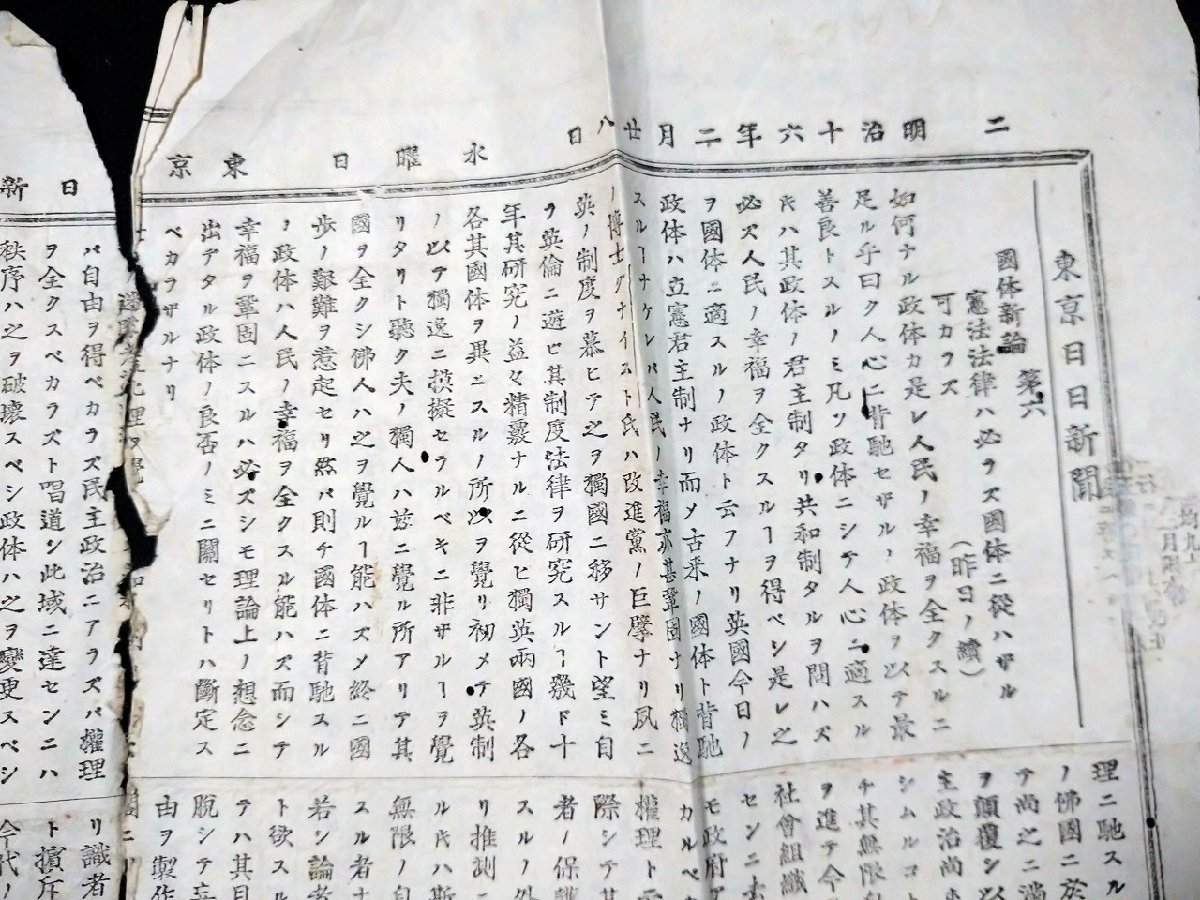 二 明治十六年二月廿八日 水曜日 東京
日新
東京日日新聞
國体新論 第六
憲法法律ハ必ラズ國体ニ從ハザル
可カラズ (昨日ノ續)
如何ナル政体カ是レ人民ノ幸福ヲ全クスルニ
足ル乎曰ク人心ニ背馳セザルノ政体ヲ以テ最
善良トスルノミ凡ソ政体ニシテ人心ニ適スル
𪜈ハ其政体ノ君主制タリ共和制タルヲ問ハズ
必ズ人民ノ幸福ヲ全クスルヿヲ得ベシ是レ之
ヲ國体ニ適スルノ政体ト云フナリ英國今日ノ
政体ハ立憲君主制ナリ而メ古来ノ國体ト背馳
スルヿナケレバ人民ノ幸福亦甚鞏固ナリ獨逸
ノ博士クナイスト氏ハ改進黨ノ巨擘ナリ夙ニ
英ノ制度ヲ慕ヒテ之ヲ獨國ニ移サント望ミ自
ラ英倫ニ遊ビ其制度法律ヲ研究スルヿ幾ド十
年其研究ノ益々精覈ナルニ從ヒ獨英兩國ノ各
各其國体ヲ異ニスルノ所以ヲ覺リ初メテ英制
ノ以テ獨逸ニ模擬セラルベキニ非ザルヿヲ覺
リタリト聽ク夫ノ獨人ハ玆ニ覺ル所アリテ其
國ヲ全クシ佛人ハ之ヲ覺ルヿ能ハズメ終ニ國
歩ノ艱難ヲ惹起セリ然バ則チ國体ニ背馳スル
ノ政体ハ人民ノ幸福ヲ全クスル能ハズ而シテ
幸福ヲ鞏固ニスルハ必ズシモ理論上ノ想念ニ
出デタル政体ノ良否ノミニ關セリトハ斷定ス
ベカラザルナリ
バ自由ヲ得ベカラズ民主政治ニアラズバ權理
ヲ全クスベカラズト唱道シ此域ニ達センニハ
秩序ハ之ヲ破壊スベシ政体ハ之ヲ變更スベシ
理ニ馳スル
ノ佛國ニ於
テ尚之ニ滿
ヲ顚覆シ以
主政治尚
シムルコト
チ其無限
ヲ進テ今
社會組織
センニ
モ政府
カルベ
權理ト
際シテ其
者ノ保護
スルノ外
リ推測ニ
ル𪜈ハ斯
無限ノ自
スル者ナ
若シ論者
ト欲スル
テハ其目
脫シテ
由ヲ製作
リ識者
ト擯斥
今代ノ